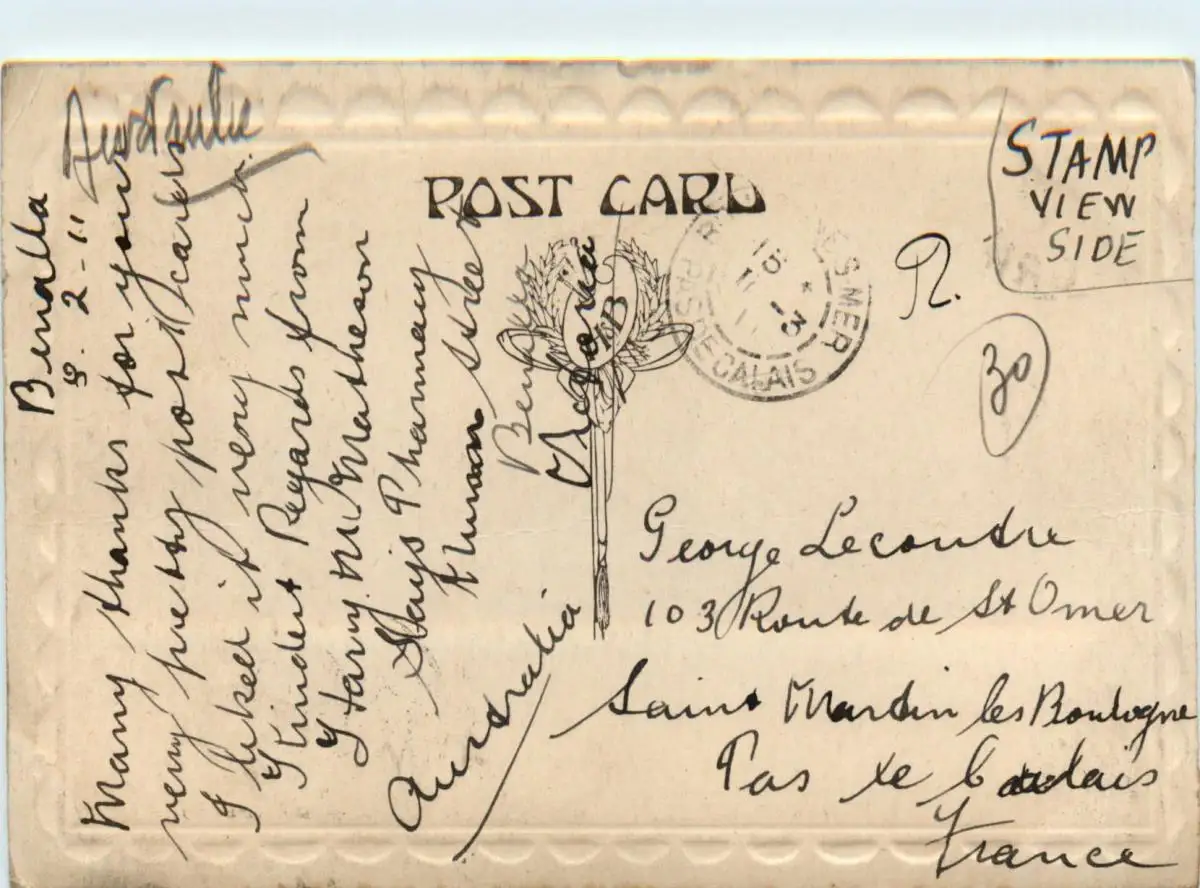 Benalla
8. 2-11
Many thanks for your
very pretty post card
I liked it very much.
Kindest Regards from
Harry M. Matheson
Hays Pharmacy
Nunn Street
Benalla
Victoria
Australia
POST CARD
STAMP
VIEW
SIDE
S MER
PAS DE CALAIS
R.
30
George Lecoutre
103 Route de St Omer
Saint Martin les Boulogne
Pas de Calais
France